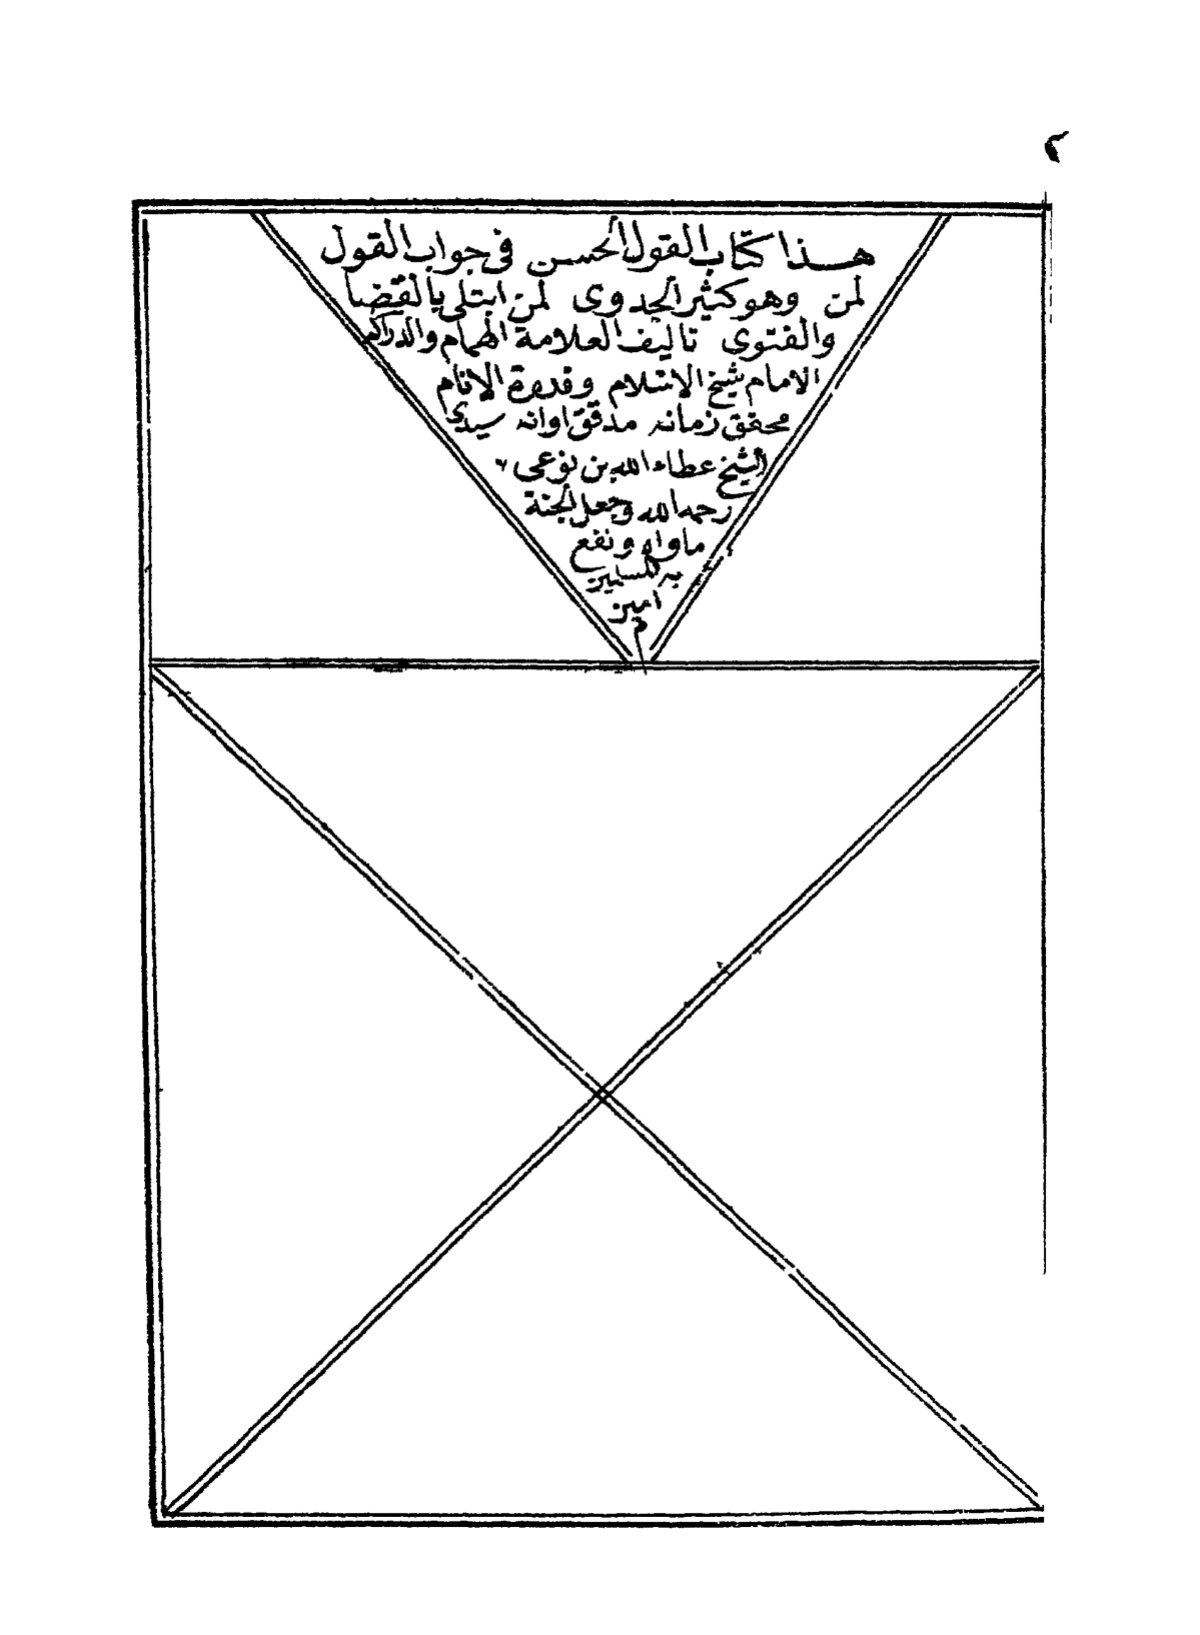 ٢
هذا كتاب القول الحسن في جواب القول
لمن وهو كثير الجدوى لمن ابتلى بالقضا
والفتوى تاليف العلامة الهمام والدراكه
الامام شيخ الاسلام وقدوة الانام
محقق زمانه مدقق اوانه سيدى
الشيخ عطاء الله بن نوعى
رحمه الله وجعل الجنة
ماواه ونفع
به المسلمين
امين
م